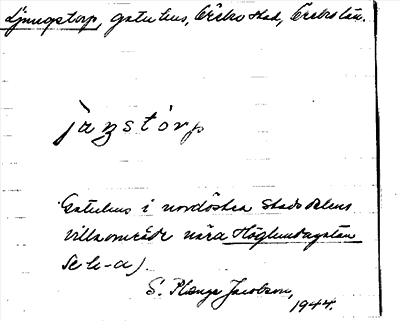 Ljungstorp, gatuhus, Örebro stad, Örebro län.
jaŋstòrp
Gatuhus i nordöstra stadsdelens
villaområde nära Höglundagatan
Se h-a)
S. Plenge Jacobson,
1944.